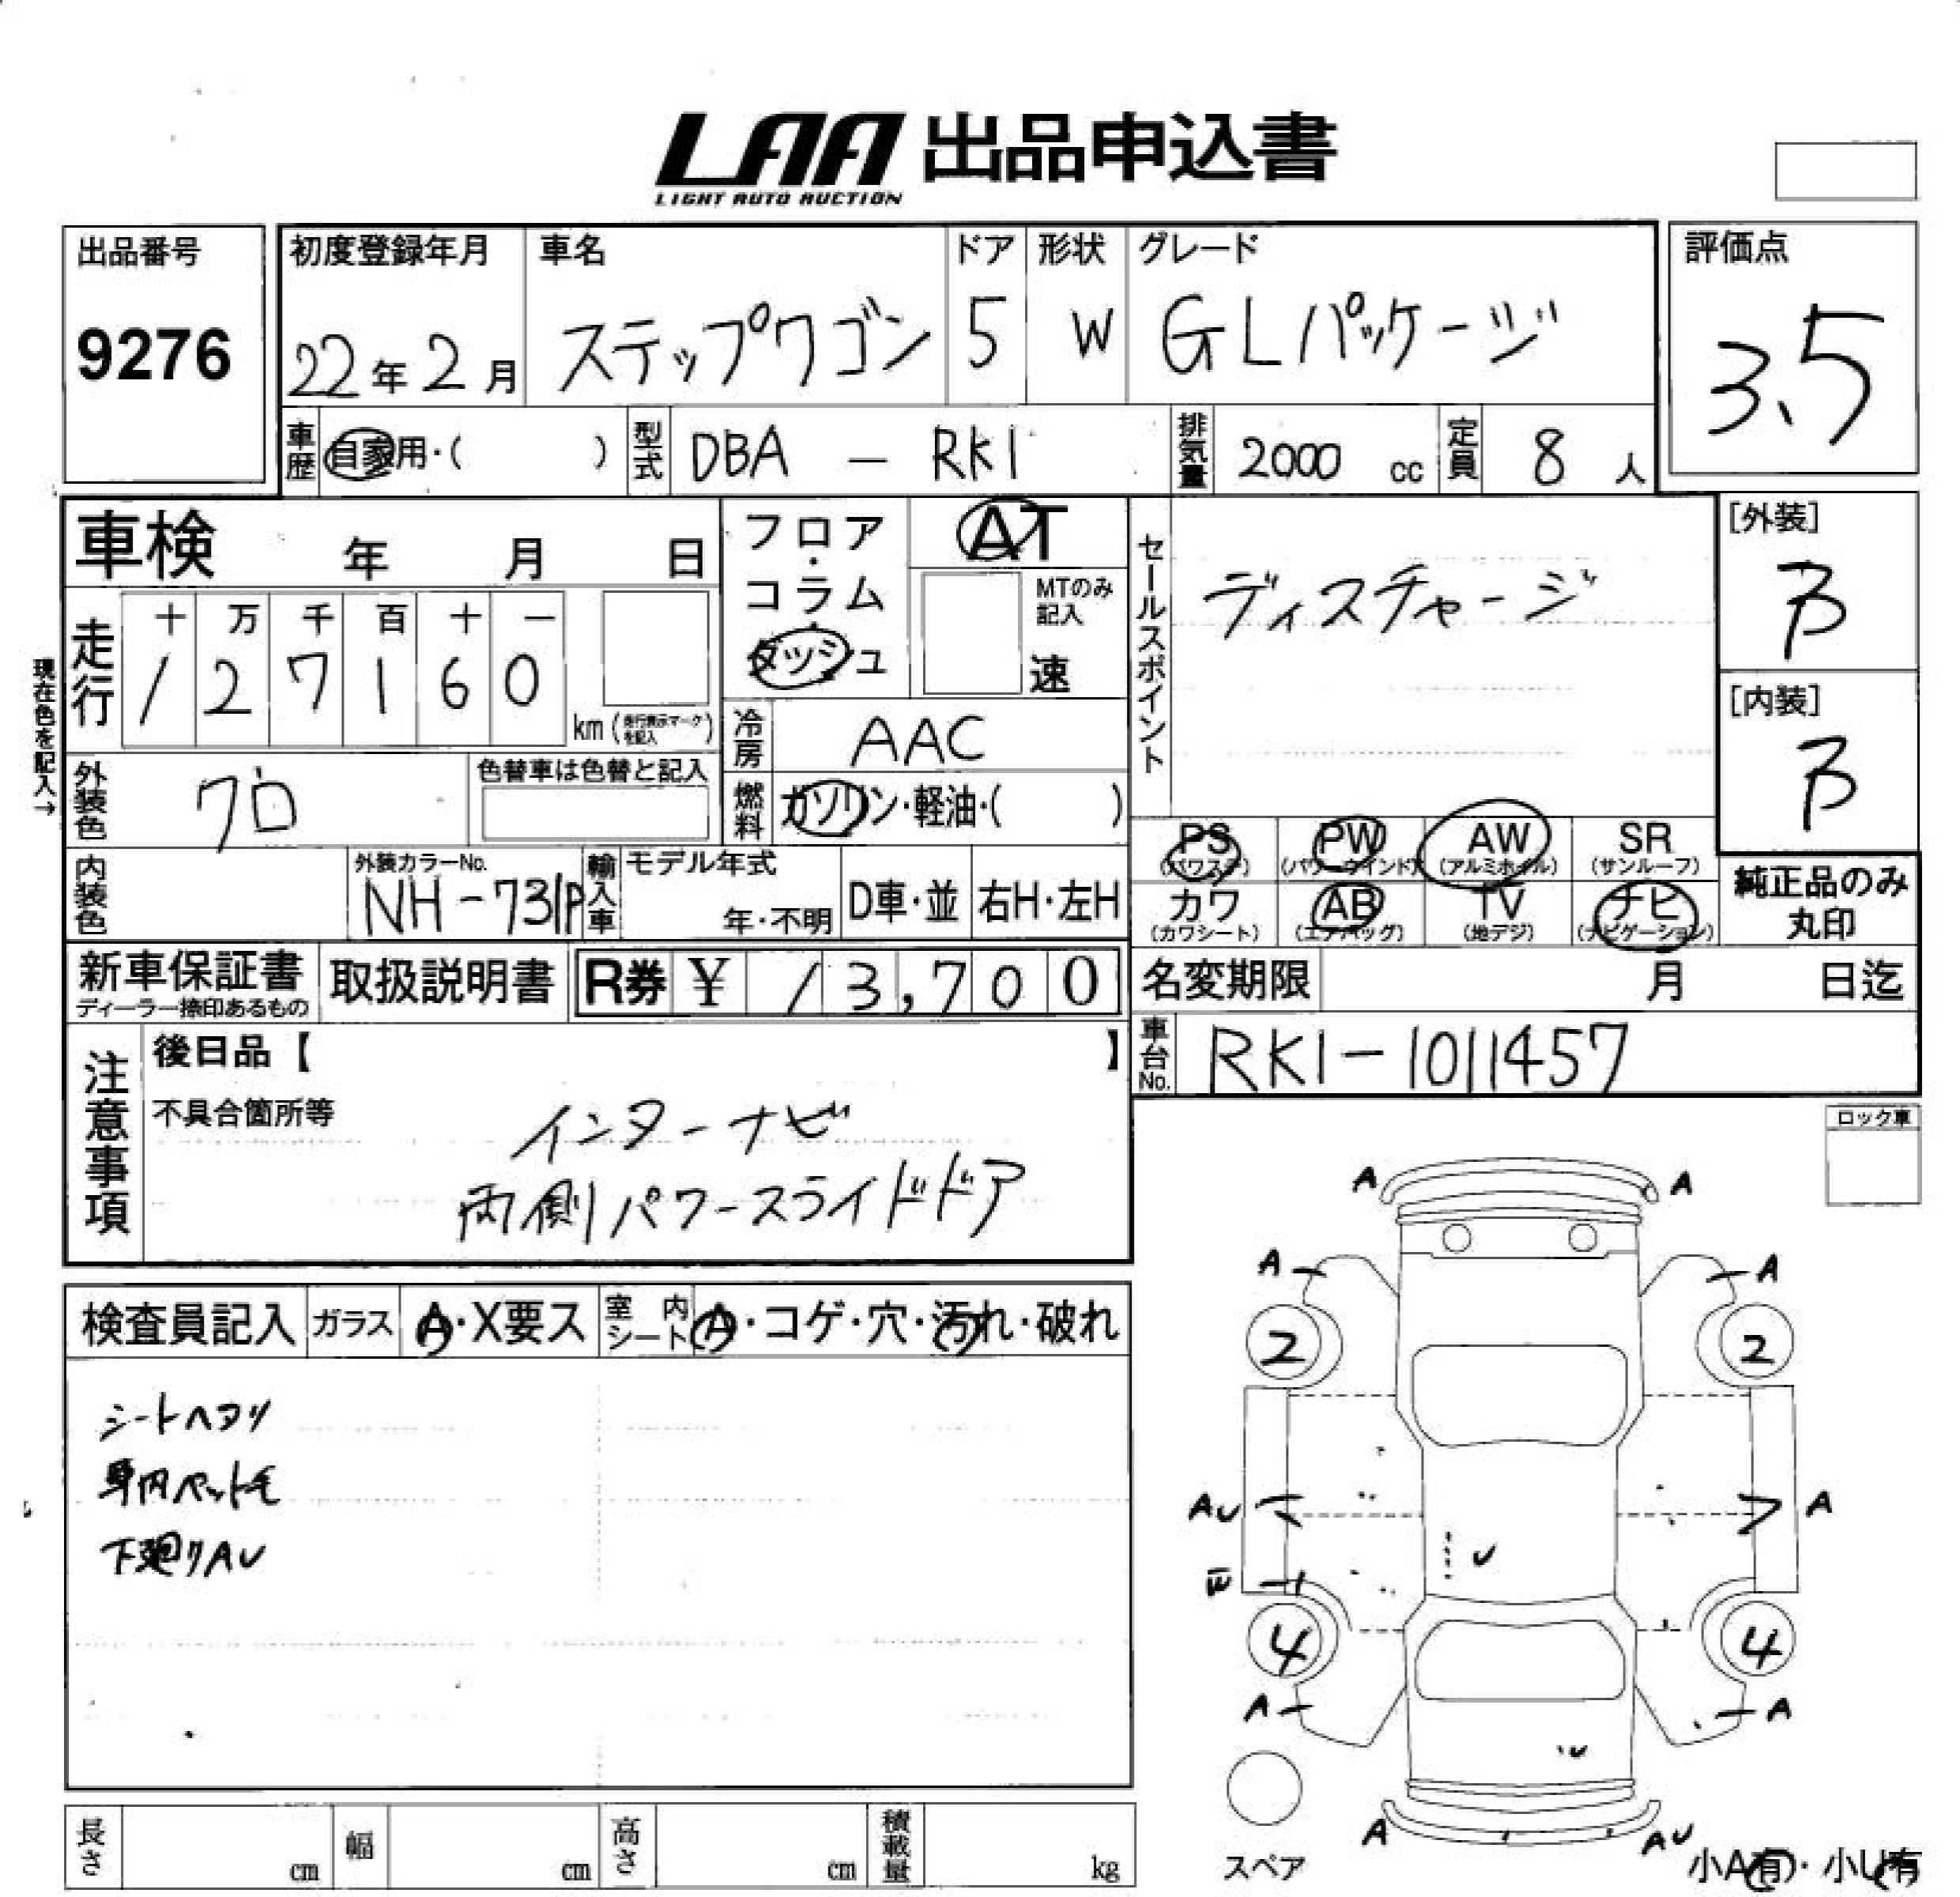 LAA 出品申込書
LIGHT AUTO AUCTION
出品番号
9276
初度登録年月
22年2月
車名
ステップワゴン
ドア
5
形状
W
グレード
GLパッケージ
評価点
3.5
車歴
自家用・( )
型式
DBA - RK1
排気量
2000 cc
定員
8 人
車検 年 月 日
フロア・コラム・ダッシュ
AT
MTのみ記入
速
セールスポイント
ディスチャージ
[外装]
B
[内装]
B
現在色を記入→
走行
十 万 千 百 十 一
1 2 7 1 6 0
km (走行表示マークを記入)
冷房
AAC
外装色
クロ
色替車は色替と記入
燃料
ガソリン・軽油・( )
PS
(パワステ)
PW
(パワーウインド)
AW
(アルミホイル)
SR
(サンルーフ)
カワ
(カワシート)
AB
(エアバッグ)
TV
(地デジ)
ナビ
(ナビゲーション)
純正品のみ
丸印
内装色
外装カラーNo.
NH-731P
輸入車
モデル年式
年・不明
D車・並
右H・左H
新車保証書
ディーラー捺印あるもの
取扱説明書
R券 ¥ 13,700
名変期限 月 日迄
車台No.
RK1-1011457
注意事項
後日品【 】
不具合箇所等
インターナビ
両側パワースライドドア
ロック車
検査員記入
ガラス
A・X要ス
室内シート
A・コゲ・穴・汚れ・破れ
シートヘタリ
車内ペット毛
下廻りAU
A A
A A
2 2
AU A
W
U
4 4
A A
U
A AU
スペア
小A有・小U有
長さ cm
幅 cm
高さ cm
積載量 kg